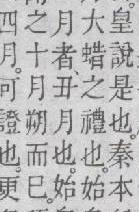 皇說是也秦本
大蜡之禮也始
月者丑月也始
之十朔而巳
四月可證也更